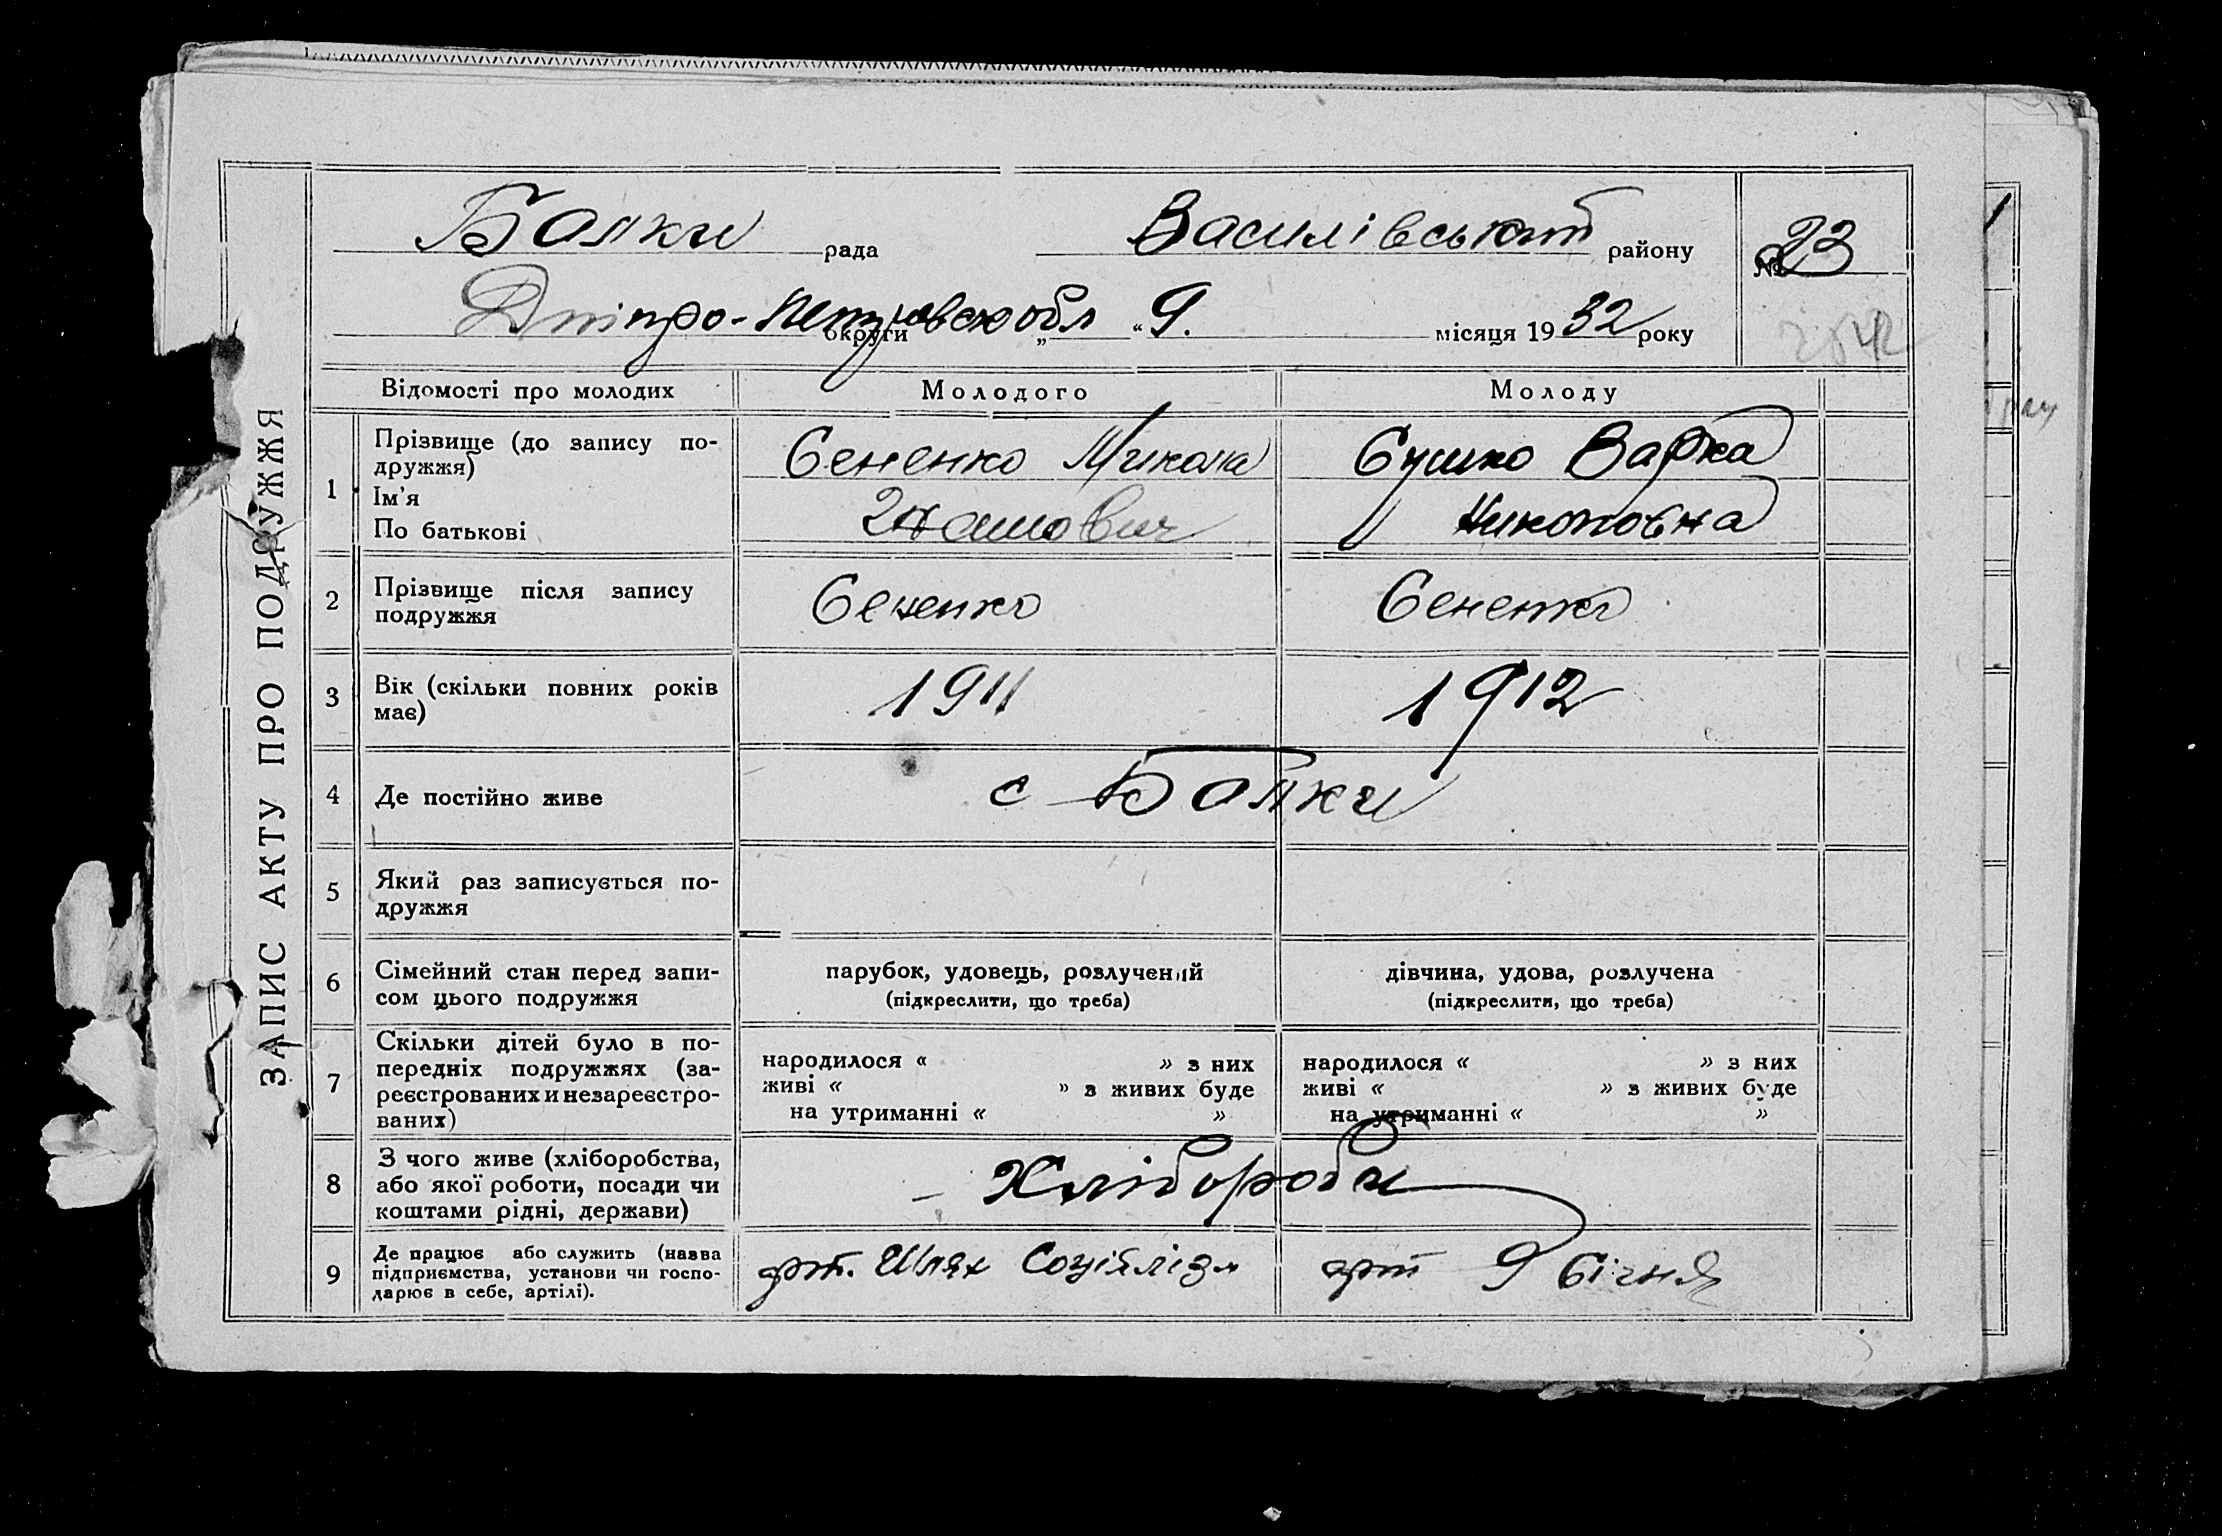 ЗАПИС АКТУ ПРО ПОДРУЖЖЯ
Балки рада Василівський району № 23
Дніпро-Петровської обл округи „ “ 9. місяця 1932 року
Відомості про молодих Молодого Молоду
1 Прізвище (до запису по-
дружжя)
Ім'я
По батькові
Сененко Микола
Сушко Варка
Николовна
2 Прізвище після запису
подружжя
Сененко Сененко
3 Вік (скільки повних років
має)
1911 1912
4 Де постійно живе с Балки
5 Який раз записується по-
дружжя
6 Сімейний стан перед запи-
сом цього подружжя
парубок, удовець, розлучений
(підкреслити, що треба)
дівчина, удова, розлучена
(підкреслити, що треба)
7 Скільки дітей було в по-
передніх подружжях (за-
реєстрованих и незареєстро-
ваних)
народилося « » з них
живі « » з живих буде
на утриманні « »
народилося « » з них
живі « » з живих буде
на утриманні « »
8 З чого живе (хліборобства,
або якої роботи, посади чи
коштами рідні, держави)
- Хлібороби
9 Де працює або служить (назва
підприємства, установи чи госпо-
дарює в себе, артілі).
арт. Шлях Соціялізм арт 9 Січня